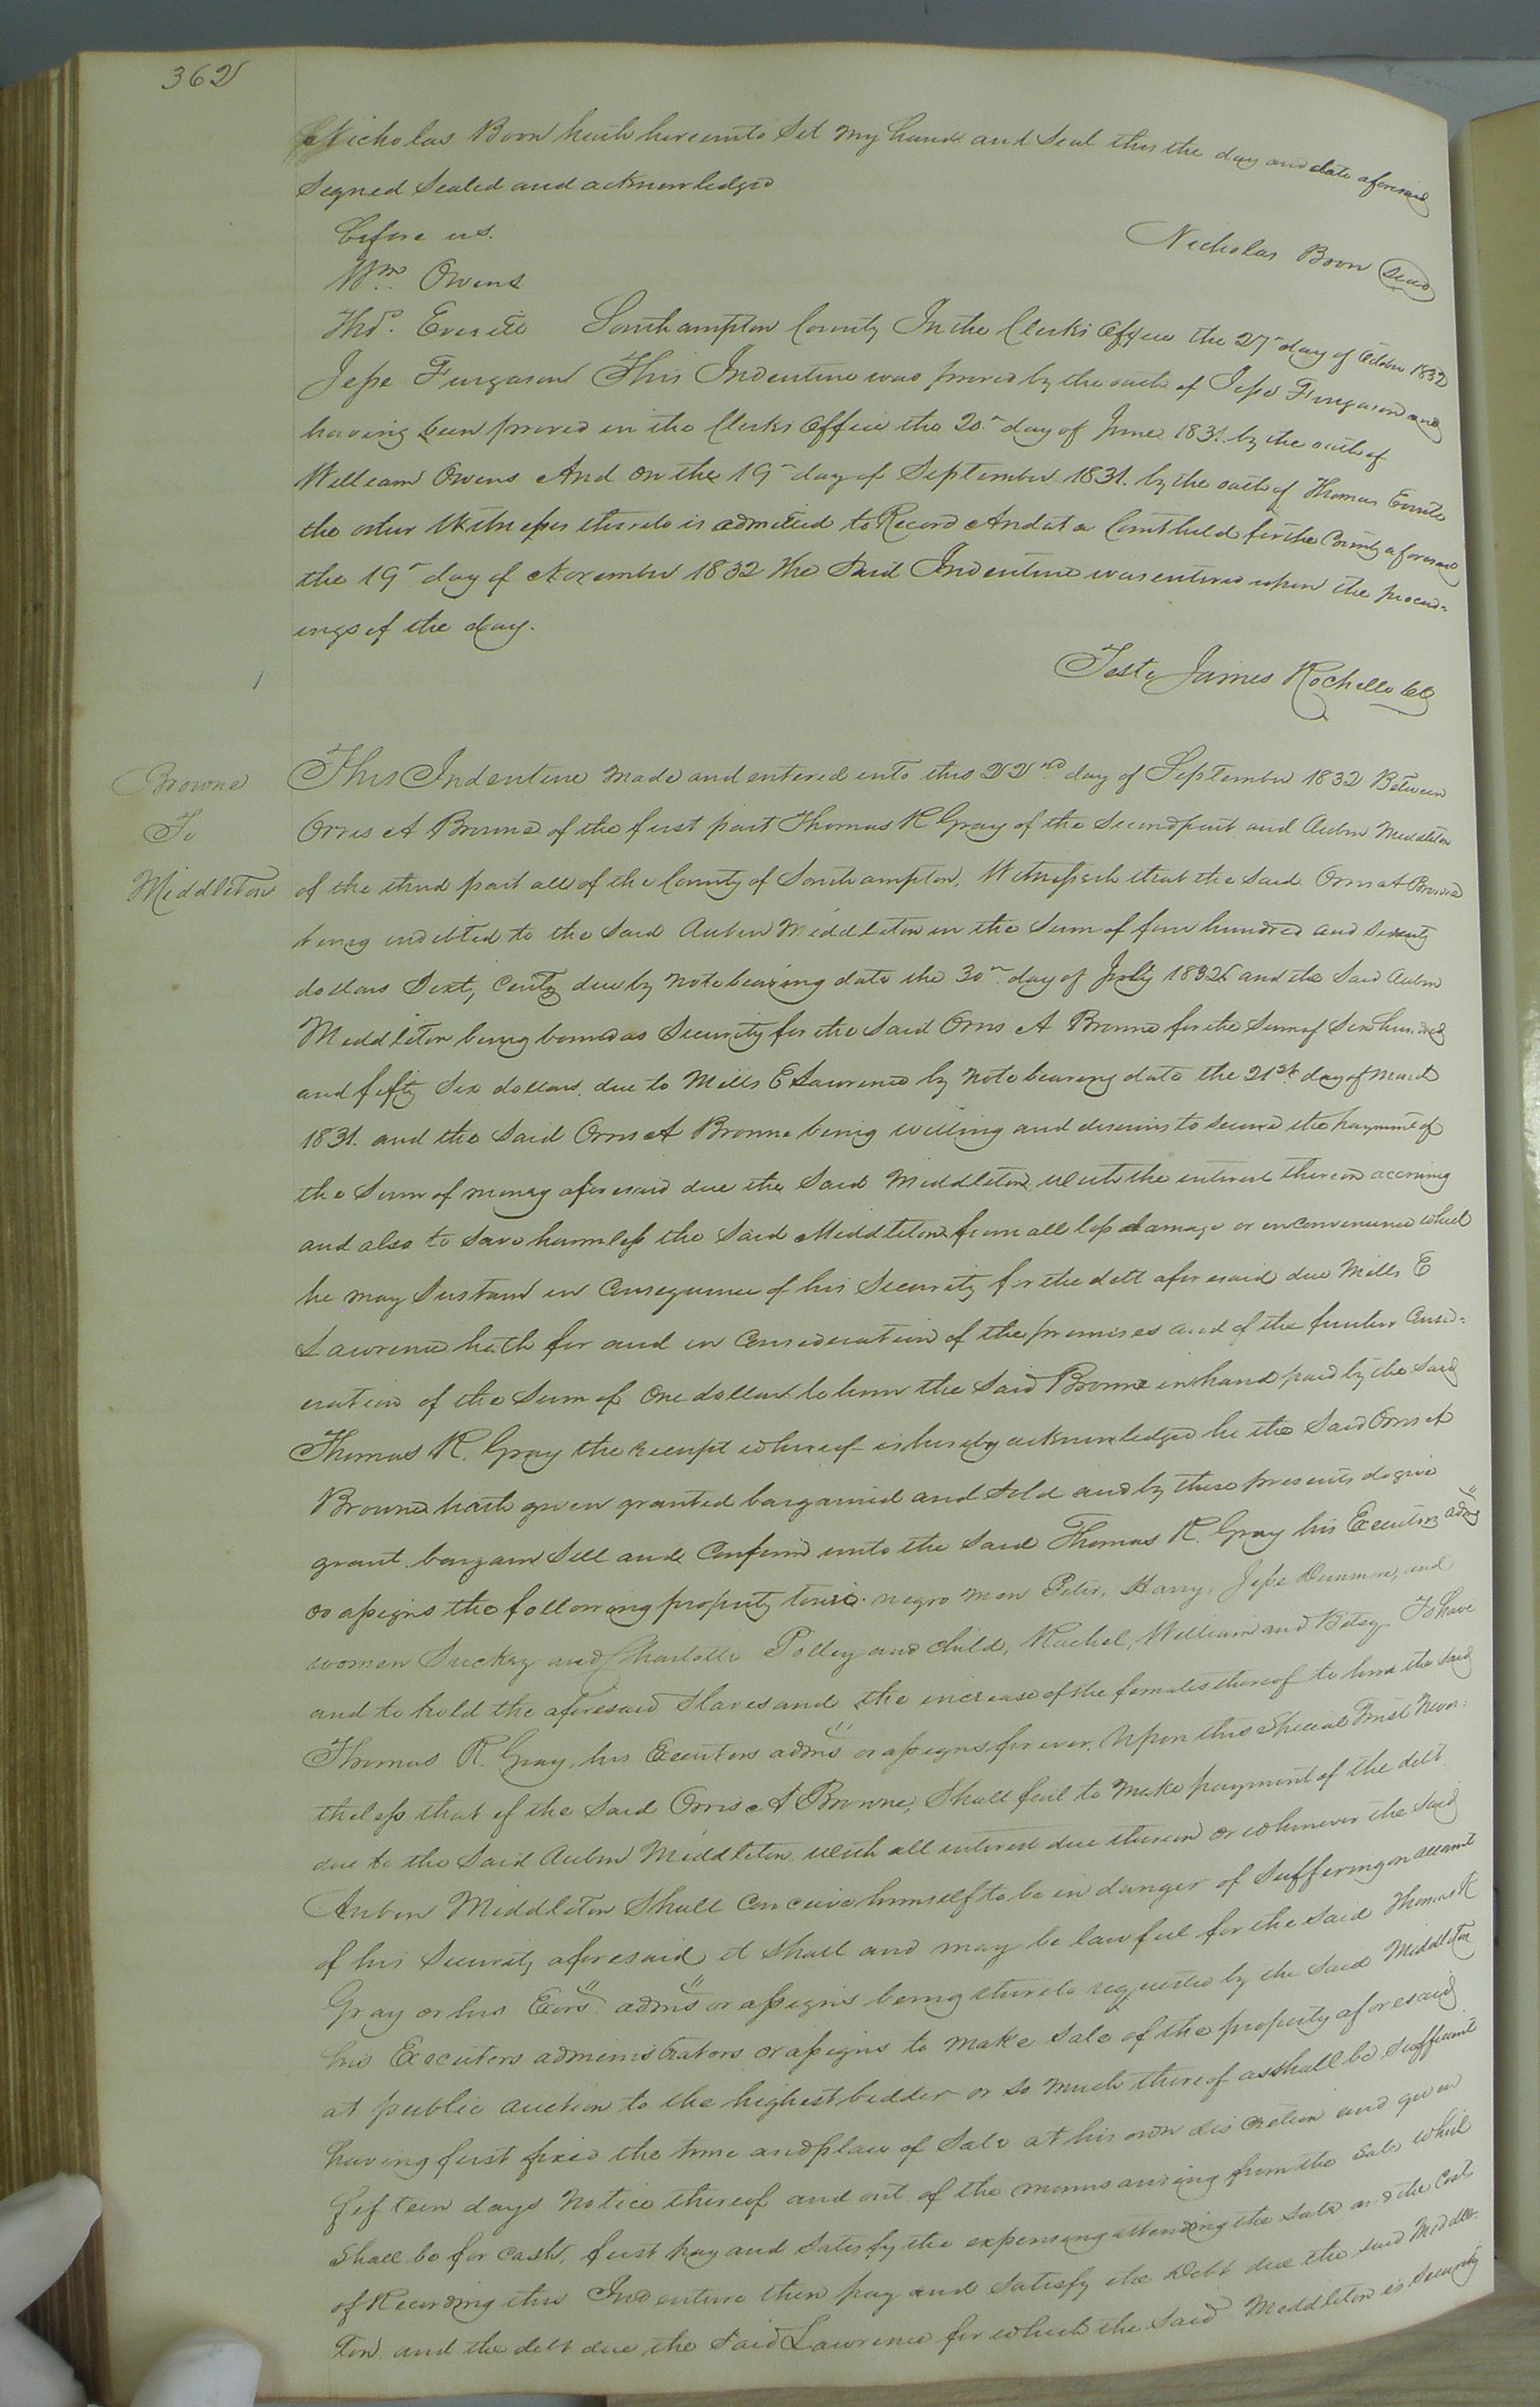 362
Nicholas Boon hath hereunto Set My hand and Seal this the day and date aforesaid
Signed Sealed and acknowledged
before us.
Nicholas Boon Seal
Wm. Owens
Thos. Everitt Southampton County In the Clerks Office the 27 day of October 1832
Jesse Furgason This Indenture was proved by the oath of Jesse Furgason and
having been proved in the Clerks Office the 20 day of June 1831. by the oath of
William Owens And on the 19 day of September 1831. by the oath of Thomas Everitt
the other Witnesses thereto is admitted to Record And at a Court held for the County aforesaid
the 19 day of November 1832 the Said Indenture was entered upon the proceed=
ings of the day.
Teste James Rochelle CC
Browne
To
Middleton
This Indenture Made and entered into this 22nd day of September 1832 Between
Orris A Browne of the first part Thomas R Gray of the Second part and Aubin Middleton
of the third part all of the County of Southampton, Witnesseth that the Said Orris A Browne
being indebted to the Said Aubin Middleton in the Sum of four hundred and Seventy
dollars Sixty Cents due by Note bearing date the 30 day of July 1832 and the Said Aubin
Middleton being bound as Security for the Said Orris A Browne for the Sum of Six hundred
and fifty Six dollars due to Mills E Lawrence by Note bearing date the 21st day of March
1831. and the Said Orris A Browne being willing and desirous to Secure the payment of
the Sum of money aforesaid due the Said Middleton with the interest thereon accruing
and also to Save harmless the Said Middleton from all loss damage or inconvenience which
he may Sustain in Consequence of his Security for the debt aforesaid due Mills E
Lawrence hath for and in Consideration of the premises and of the further Consid=
eration of the Sum of One dollar to him the Said Browne in hand paid by the Said
Thomas R. Gray the receipt whereof is hereby acknowledged he the Said Orris A
Browne hath given granted bargained and Sold and by these presents do give
grant bargain Sell and Confirm unto the Said Thomas R. Gray his Executors adms
or assigns the following property towit. negro Men Peter, Harry, Jesse Dunmore, and
women Suckey and Charlotte Polley and Child, Rachel, William and Betsy To have
and to hold the aforesaid Slaves and the increase of the females thereof to him the Said
Thomas R. Gray, his Executors adms or assigns forever. Upon this Special Trust Never=
theless that if the Said Orris A Browne, Shall fail to Make payment of the debt
due to the Said Aubin Middleton with all interest due thereon or whenever the Said
Aubin Middleton Shall Conceive himself to be in danger of Suffering on account
of his Security aforesaid it Shall and may be lawful for the Said Thomas R
Gray or his Exors adms or assigns being thereto requested by the Said Middleton
his Executors administrators or assigns to Make Sale of the property aforesaid
at public auction to the highest bidder or so Much thereof as shall be Sufficient
having first fixed the time and place of Sale at his own discretion and given
fifteen days Notice thereof and out of the monies arising from the Sale which
Shall be for Cash, first pay and Satisfy the expensing attending the Sale and the Cost
of Recording this Indenture then pay and Satisfy the Debt due the said Middle=
ton and the debt due the Said Lawrence for which the Said Middleton is Security